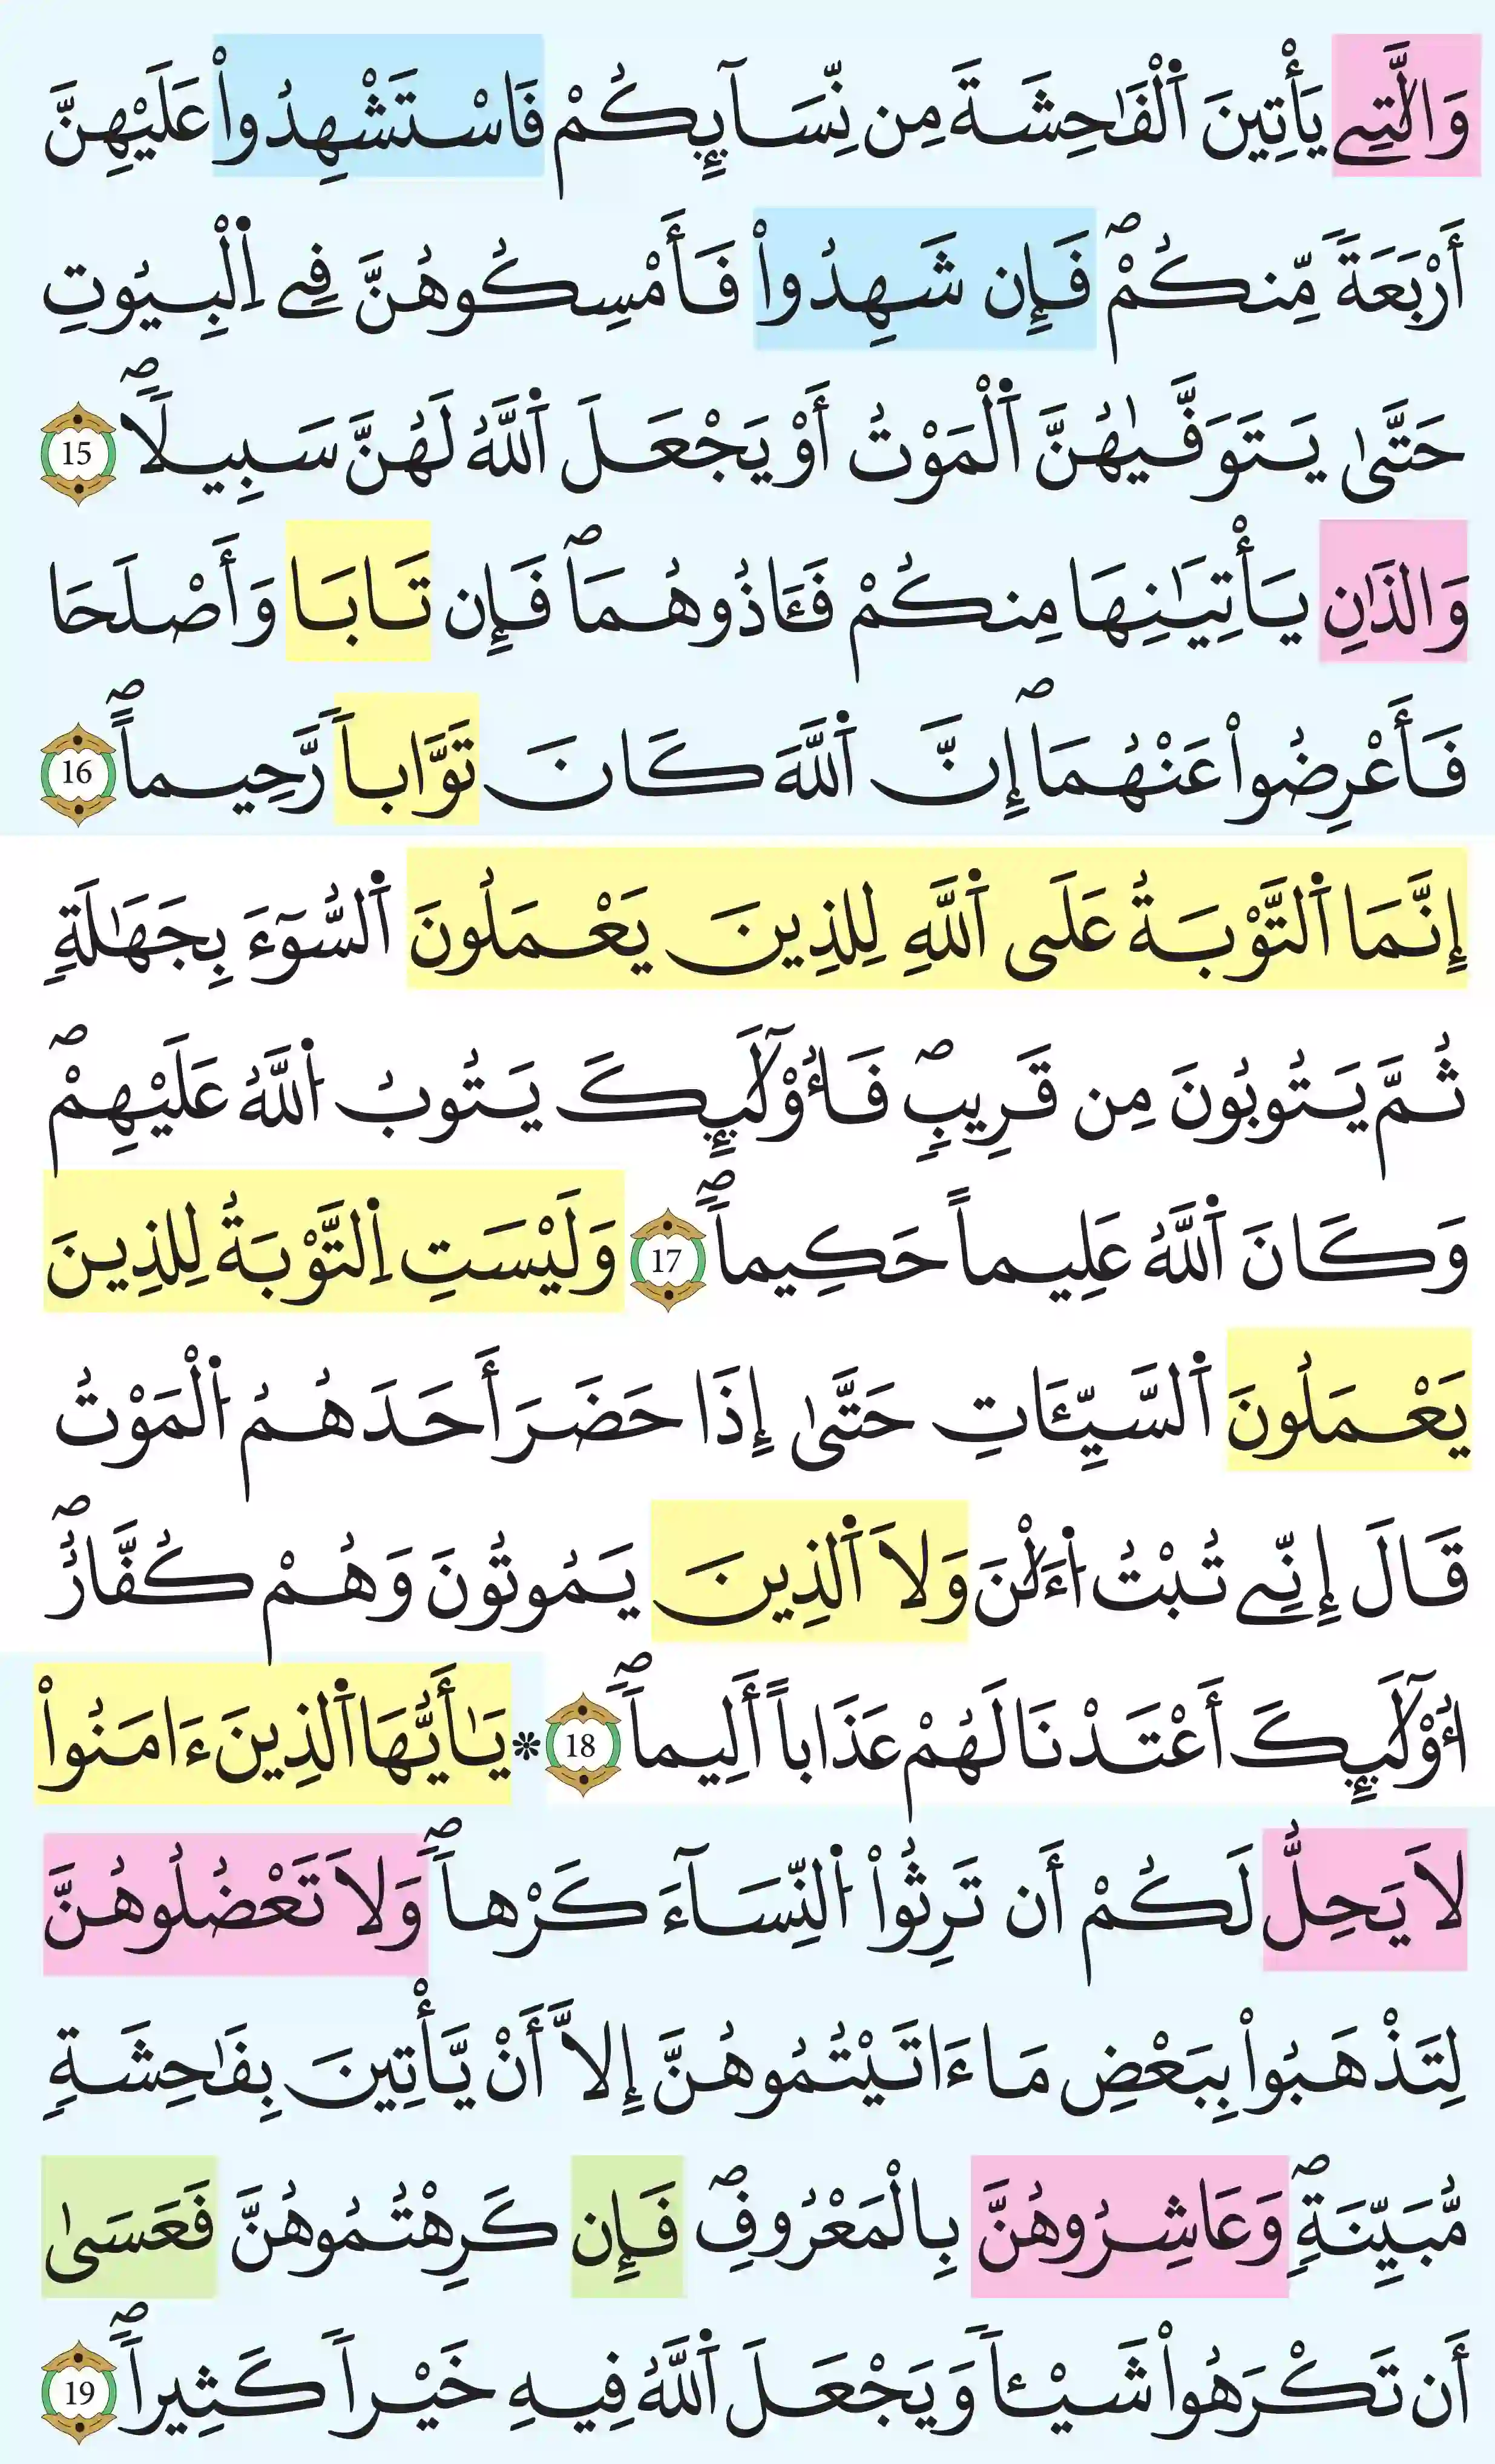 وَالَّٰتِے يَأْتِينَ اَ۬لْفَٰحِشَةَ مِن نِّسَآئِكُمْ فَاسْتَشْهِدُواْ عَلَيْهِنَّ
أَرْبَعَةٗ مِّنكُمْۖ فَإِن شَهِدُواْ فَأَمْسِكُوهُنَّ فِے اِ۬لْبِيُوتِ
حَتَّىٰ يَتَوَفَّيٰهُنَّ اَ۬لْمَوْتُ أَوْ يَجْعَلَ اَ۬للَّهُ لَهُنَّ سَبِيلاٗۖ 15
وَالذَٰنِ يَأْتِيَٰنِهَا مِنكُمْ فَـَٔاذُوهُمَاۖ فَإِن تَابَا وَأَصْلَحَا
فَأَعْرِضُواْ عَنْهُمَاۖ إِنَّ اَ۬للَّهَ كَانَ تَوَّاباٗ رَّحِيماًۖ 16
إِنَّمَا اَ۬لتَّوْبَةُ عَلَى اَ۬للَّهِ لِلذِينَ يَعْمَلُونَ اَ۬لسُّوٓءَ بِجَهَٰلَةٖ
ثُمَّ يَتُوبُونَ مِن قَرِيبٖۖ فَأُوْلَٰٓئِكَ يَتُوبُ اُ۬للَّهُ عَلَيْهِمْۖ
وَكَانَ اَ۬للَّهُ عَلِيماً حَكِيماٗۖ 17 وَلَيْسَتِ اِ۬لتَّوْبَةُ لِلذِينَ
يَعْمَلُونَ اَ۬لسَّيِّـَٔاتِ حَتَّىٰ إِذَا حَضَرَ أَحَدَهُمُ اُ۬لْمَوْتُ
قَالَ إِنِّے تُبْتُ اُ۬لَٰٔنَ وَلَا اَ۬لذِينَ يَمُوتُونَ وَهُمْ كُفَّارٌۖ
اُوْلَٰٓئِكَ أَعْتَدْنَا لَهُمْ عَذَاباً أَلِيماٗۖ 18 * يَٰأَيُّهَا اَ۬لذِينَ ءَامَنُواْ
لَا يَحِلُّ لَكُمْ أَن تَرِثُواْ اُ۬لنِّسَآءَ كَرْهاٗۖ وَلَا تَعْضُلُوهُنَّ
لِتَذْهَبُواْ بِبَعْضِ مَا ءَاتَيْتُمُوهُنَّ إِلَّا أَنْ يَّأْتِينَ بِفَٰحِشَةٖ
مُّبَيِّنَةٖۖ وَعَاشِرُوهُنَّ بِالْمَعْرُوفِۖ فَإِن كَرِهْتُمُوهُنَّ فَعَسَىٰ
أَن تَكْرَهُواْ شَيْـٔاٗ وَيَجْعَلَ اَ۬للَّهُ فِيهِ خَيْراٗ كَثِيراٗۖ 19